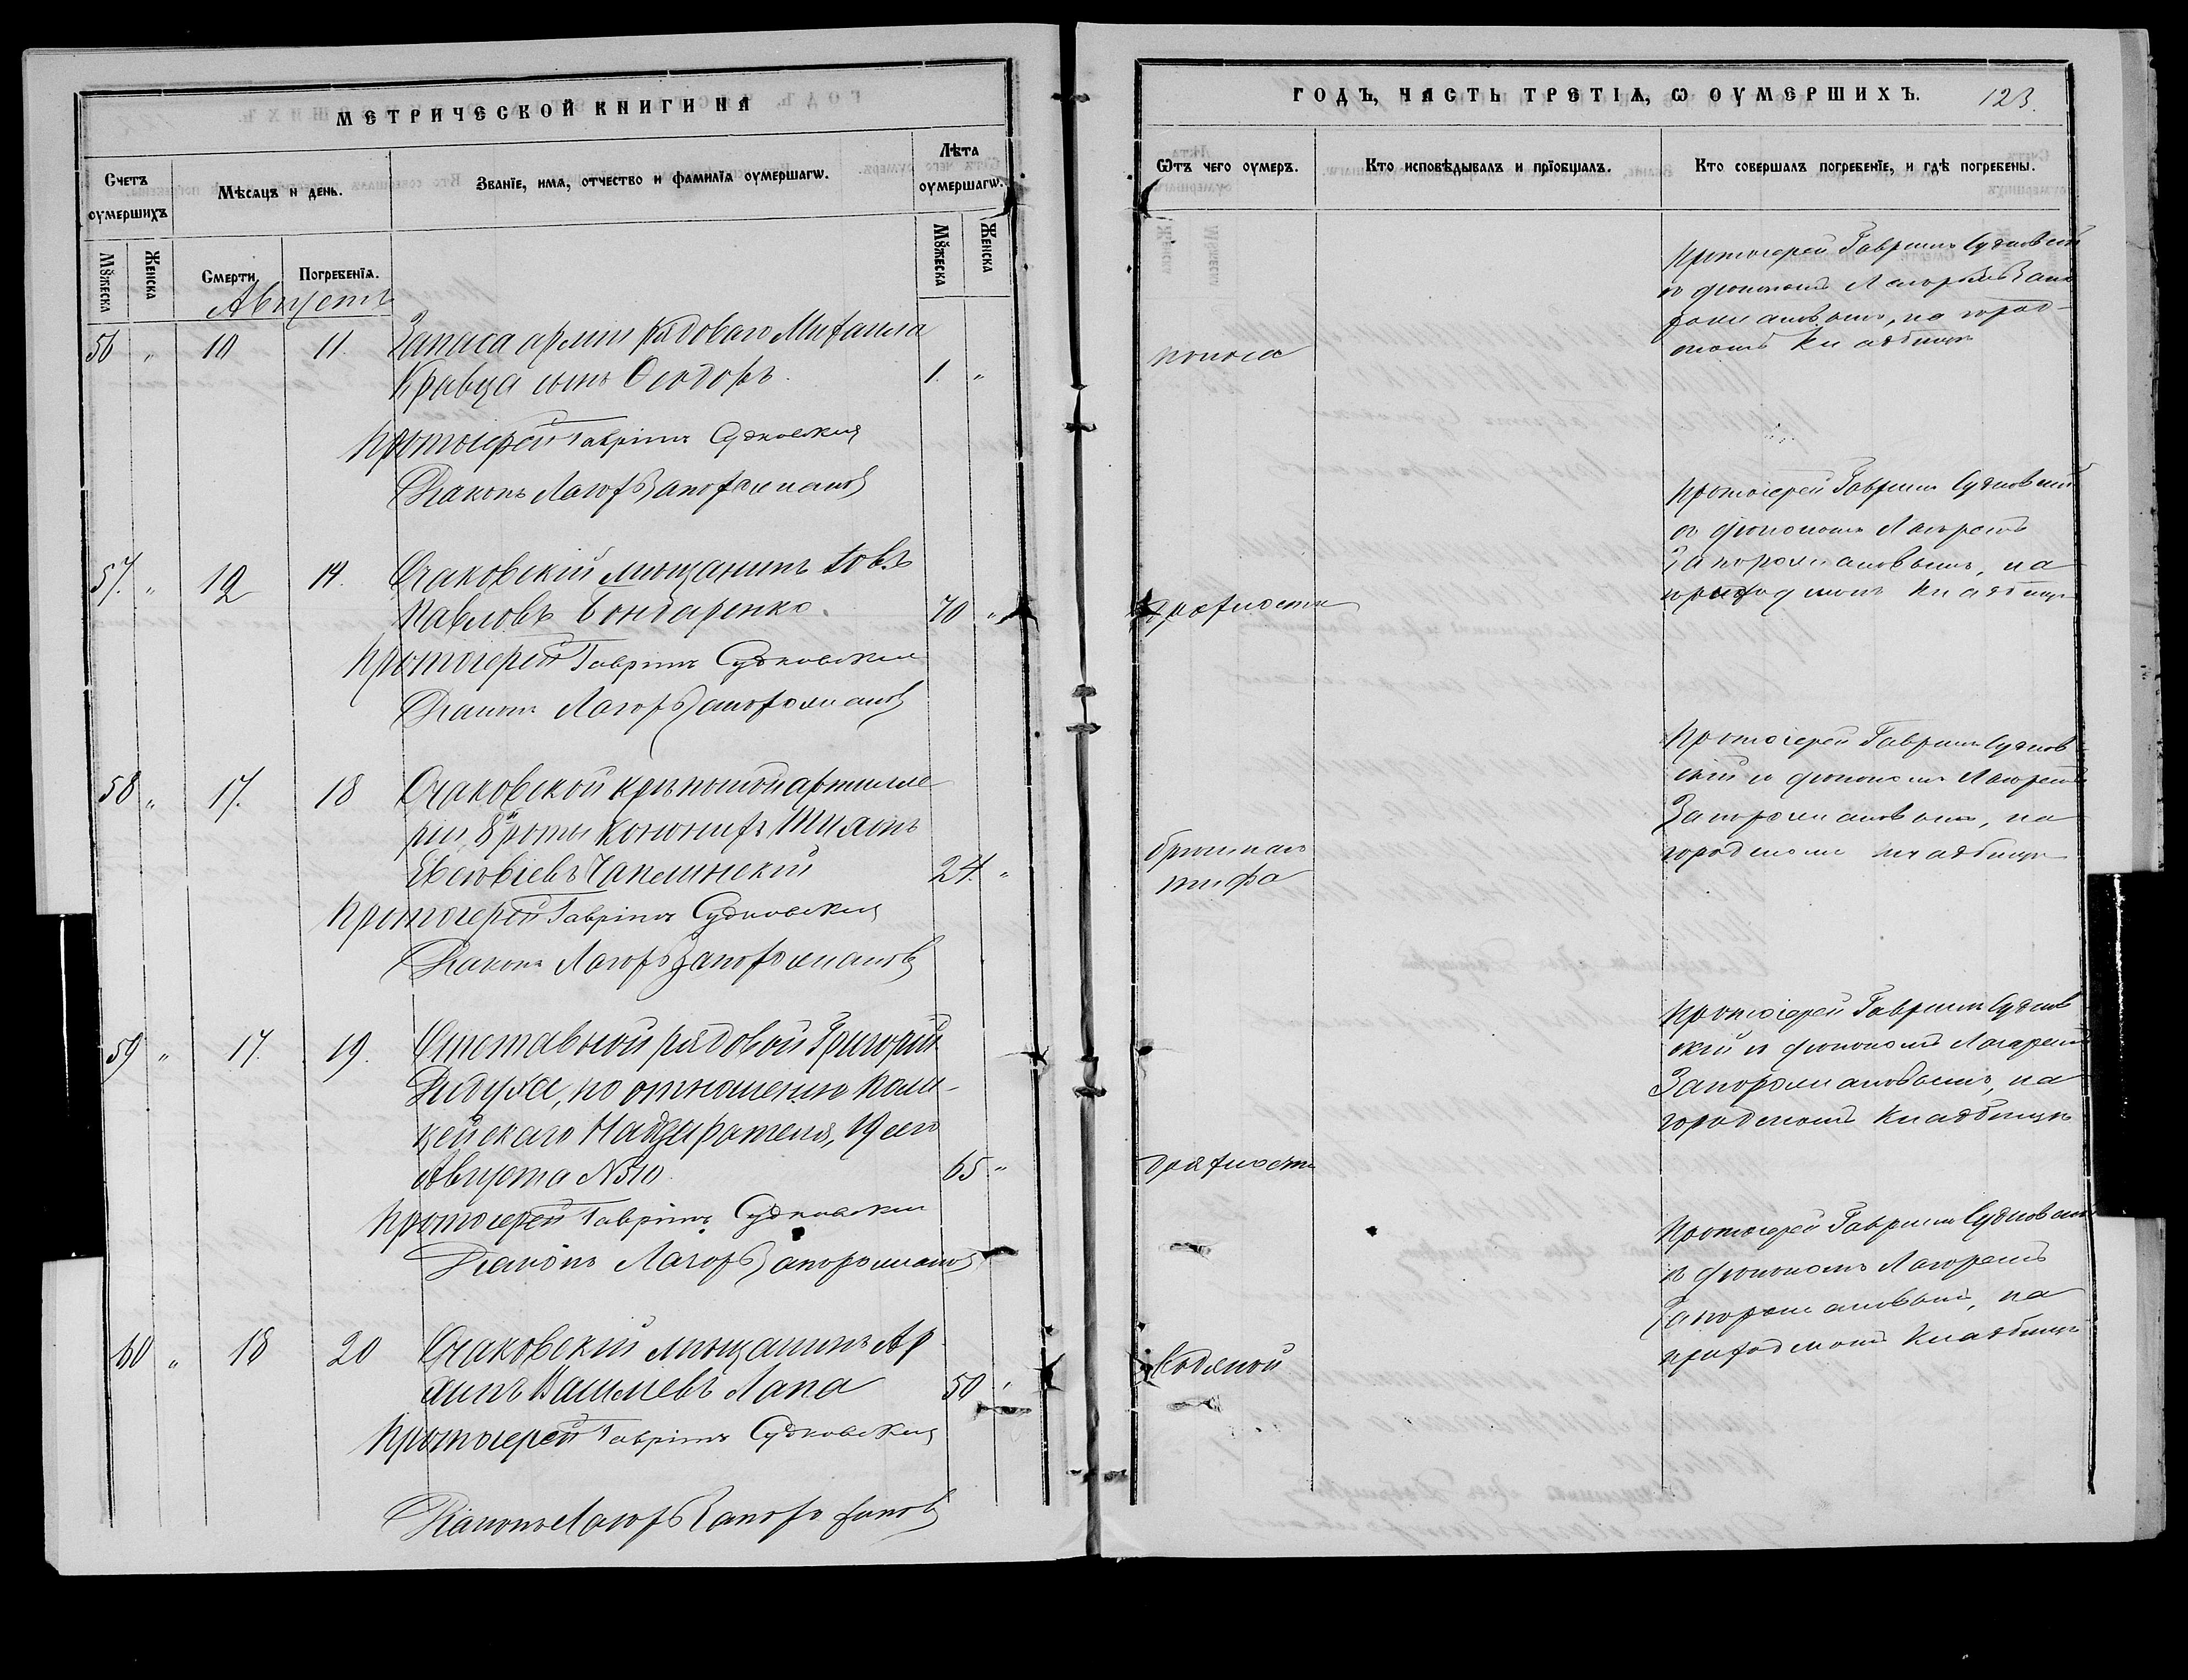 МЕТРИЧЕСКОЙ КНИГИ НА
Счетъ оумершихъ
Мѣсяцъ и день.
Званїе, имя, отчество и фамилїа оумершагѡ.
Лѣта оумершагѡ.
Мꙋжеска
Женска
Смерти
Погребенїя.
Мꙋжеска
Женска
Августъ
56 " 10 11. Запаса армiи рядоваго Михаила
Кравца сынъ Ѳеодоръ. 1. "
Протоiерей Гаврiилъ Судковскiй
Дiаконъ Лагоръ Запорожановъ
57. " 12 14. Очаковскiй мѣщанинъ Iовъ
Павловъ Бондаренко. 70 "
Протоiерей Гаврiилъ Судковскiй
Дiаконъ Лагоръ Запорожановъ
58 " 17. 18 Очаковской крѣпостной артилле
рiи, 8й роты канониръ Тихонъ
Чаплинскiй 24. "
Протоiерей Гаврiилъ Судковскiй
Дiаконъ Лагоръ Запорожановъ
59 " 17. 19. Отставной рядовой Григорiй
Дидуха, по отношенiю Поли-
цейскаго Надзирателя, 19 сего
Августа № 510. 65 "
Протоiерей Гаврiилъ Судковскiй
Дiаконъ Лагоръ Запорожановъ
60 " 18 20 Очаковскiй мѣщанинъ
Васильевъ Лапа 50 "
Протоiерей Гаврiилъ Судковскiй
Дiаконъ Лагоръ Запорожановъ
ГОДЪ, ЧАСТЬ ТРЕТІЯ, Ѡ ОУМЕРШИХЪ. 123.
Ѿтъ чего оумеръ.
Кто исповѣдывалъ и прїобщалъ.
Кто совершалъ погребенїе, и гдѣ погребены.
поноса
Протоiерей Гаврiилъ Судковскiй
съ дiакономъ Лагоремъ Запо
рожановымъ, на город-
скомъ кладбищѣ
дряхлости
Протоiерей Гаврiилъ Судковскiй
съ дiакономъ Лагоремъ
Запорожановымъ, на
приходскомъ кладбищѣ
брюшнаго
тифа
Протоiерей Гаврiилъ Судков
скiй съ дiакономъ Лагоремъ
Запорожановымъ, на
городскомъ кладбищѣ
дряхлости
Протоiерей Гаврiилъ Судков
скiй съ дiакономъ Лагоремъ
Запорожановымъ, на
городскомъ кладбищѣ
водяной
Протоiерей Гаврiилъ Судковскiй
съ дiакономъ Лагоремъ
Запорожановымъ, на
приходскомъ кладбищѣ